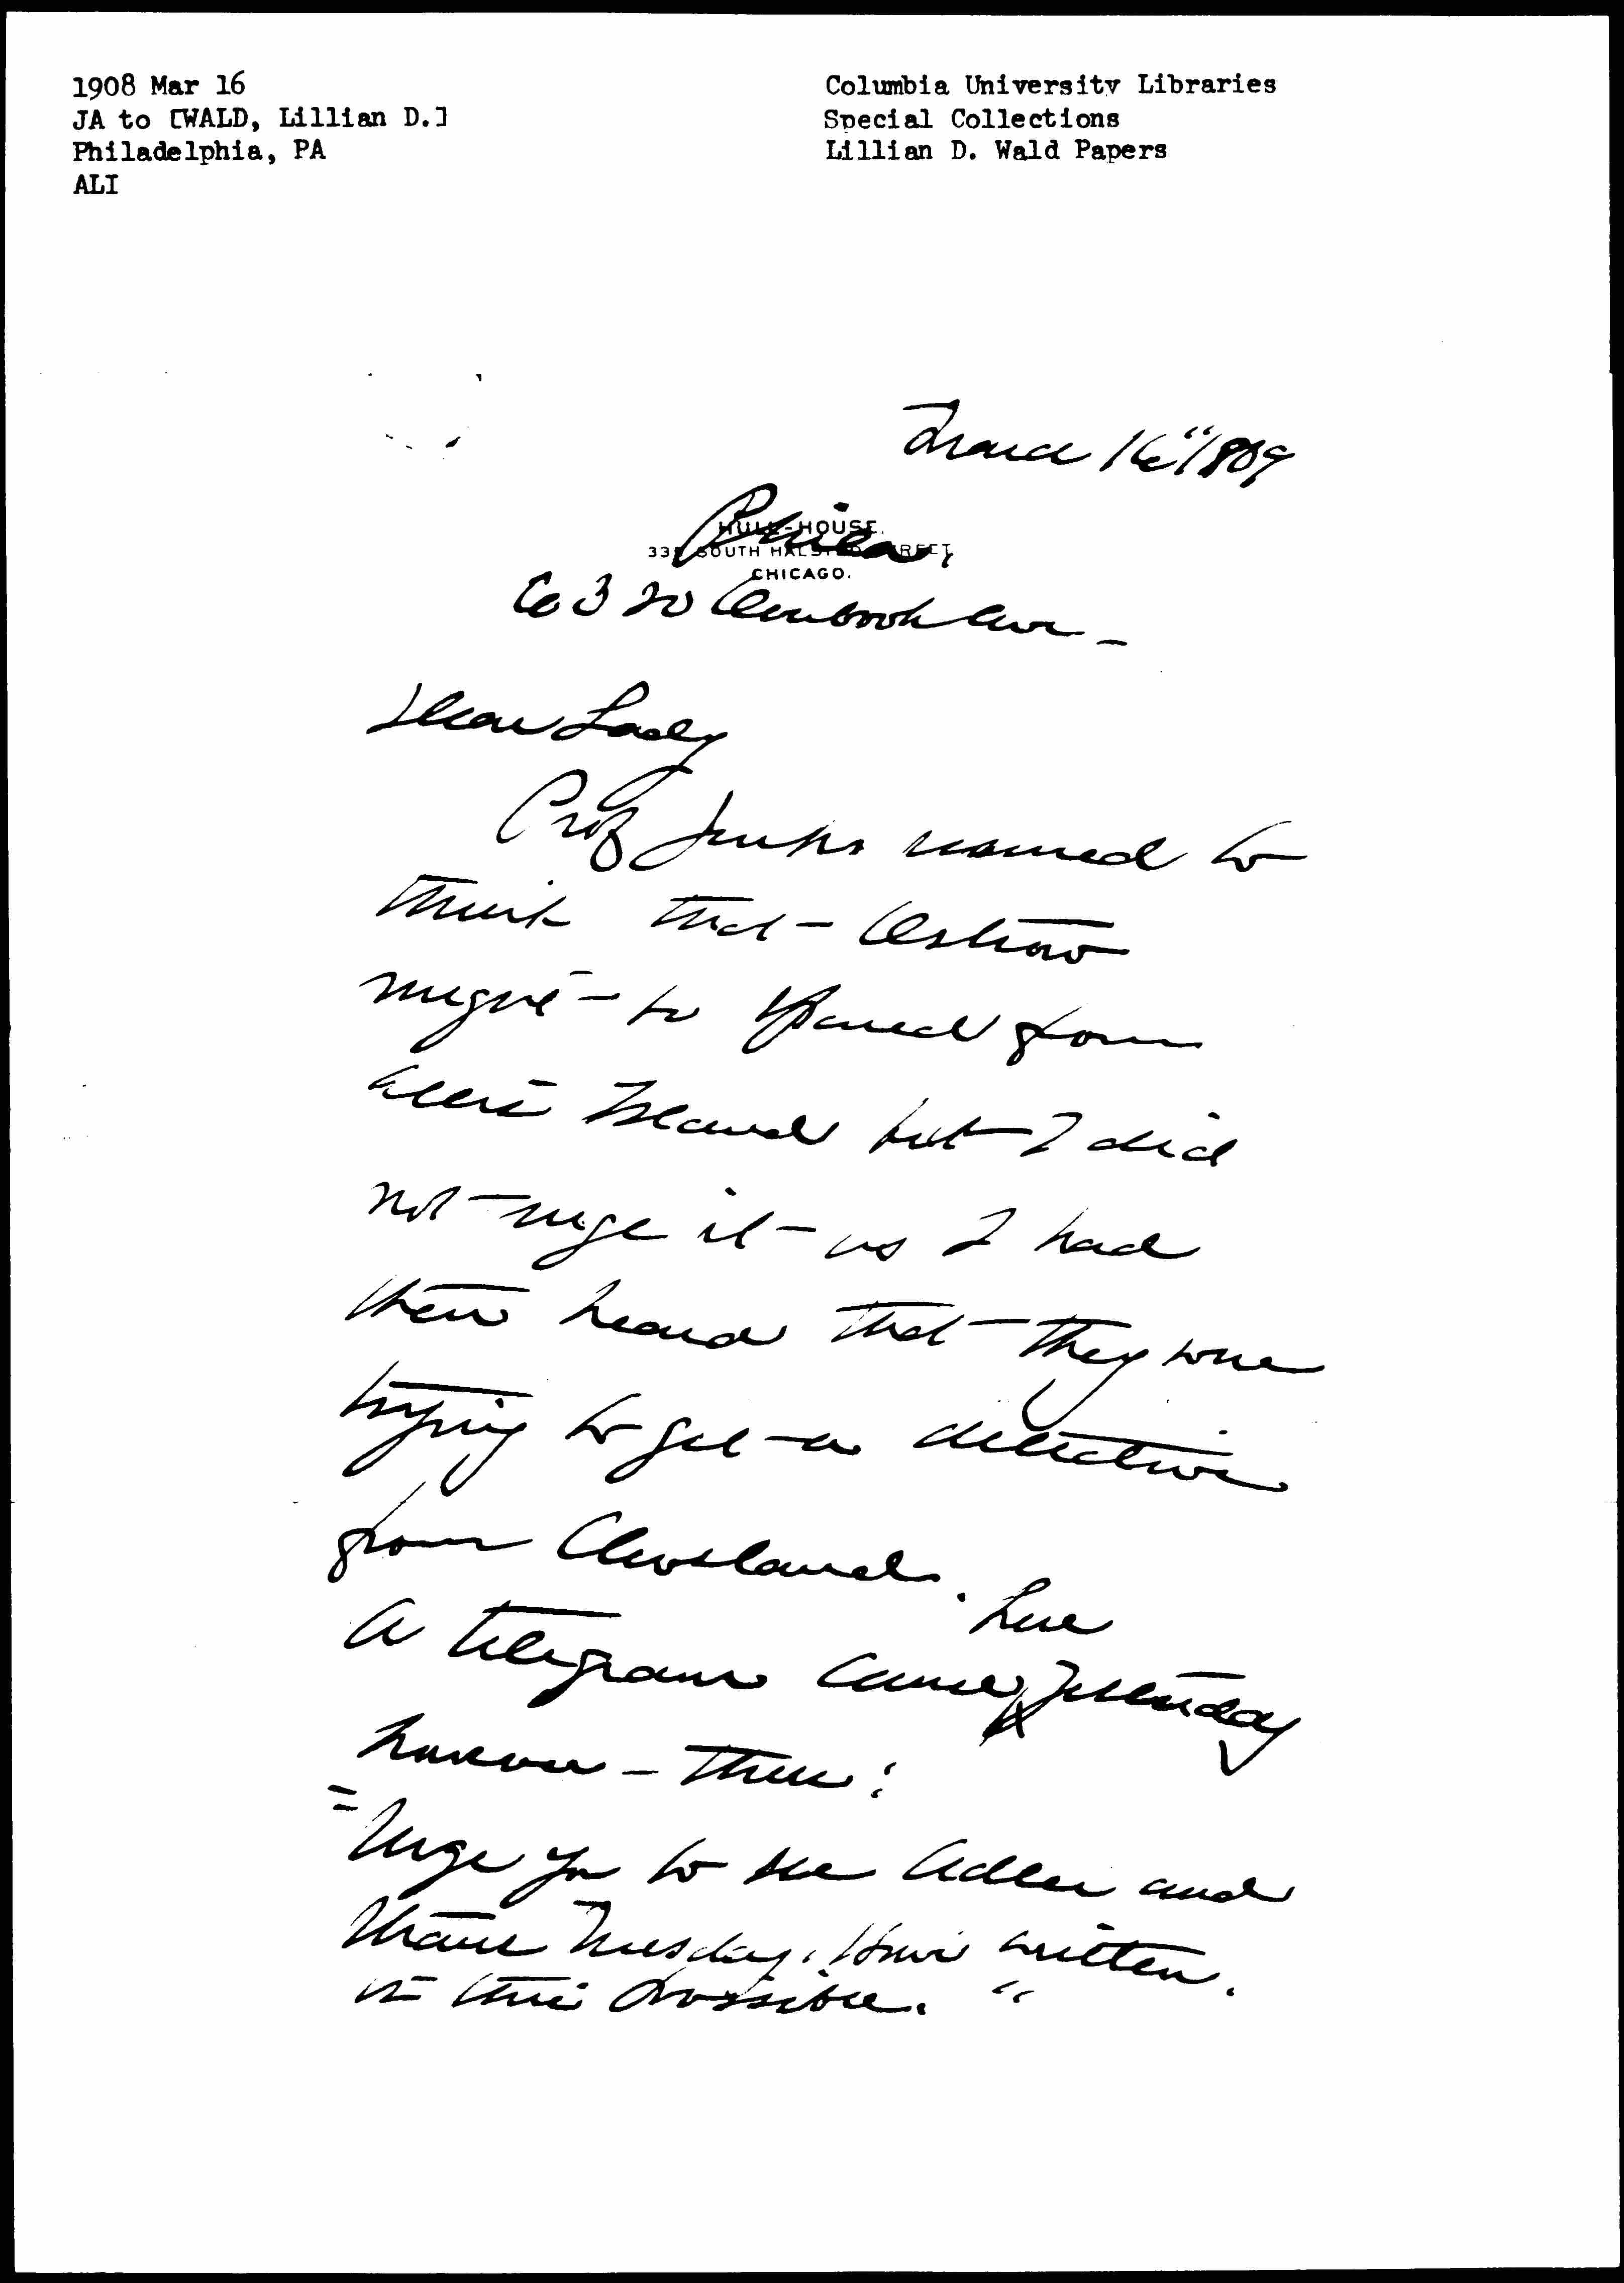 1908 Mar 16
JA to [WALD, Lillian D.]
Philadelphia, PA
ALI
Columbia University Libraries
Special Collections
Lillian D. Wald Papers
March 16"
HULL-HOUSE.
335 SOUTH HALSTED STREET,
CHICAGO.
Phila.
63 Avr -
Dear Lady
Prof Jenks seemed to
think that
might be spared from
Ellis Island but I did
not urge it - as I had
then heard that they were
trying to get a detective
from Cleveland.
A telegram came here yesterday
however - thus:
"Urge you to see Adler and
Tuesday. Have written.
is this possible. "